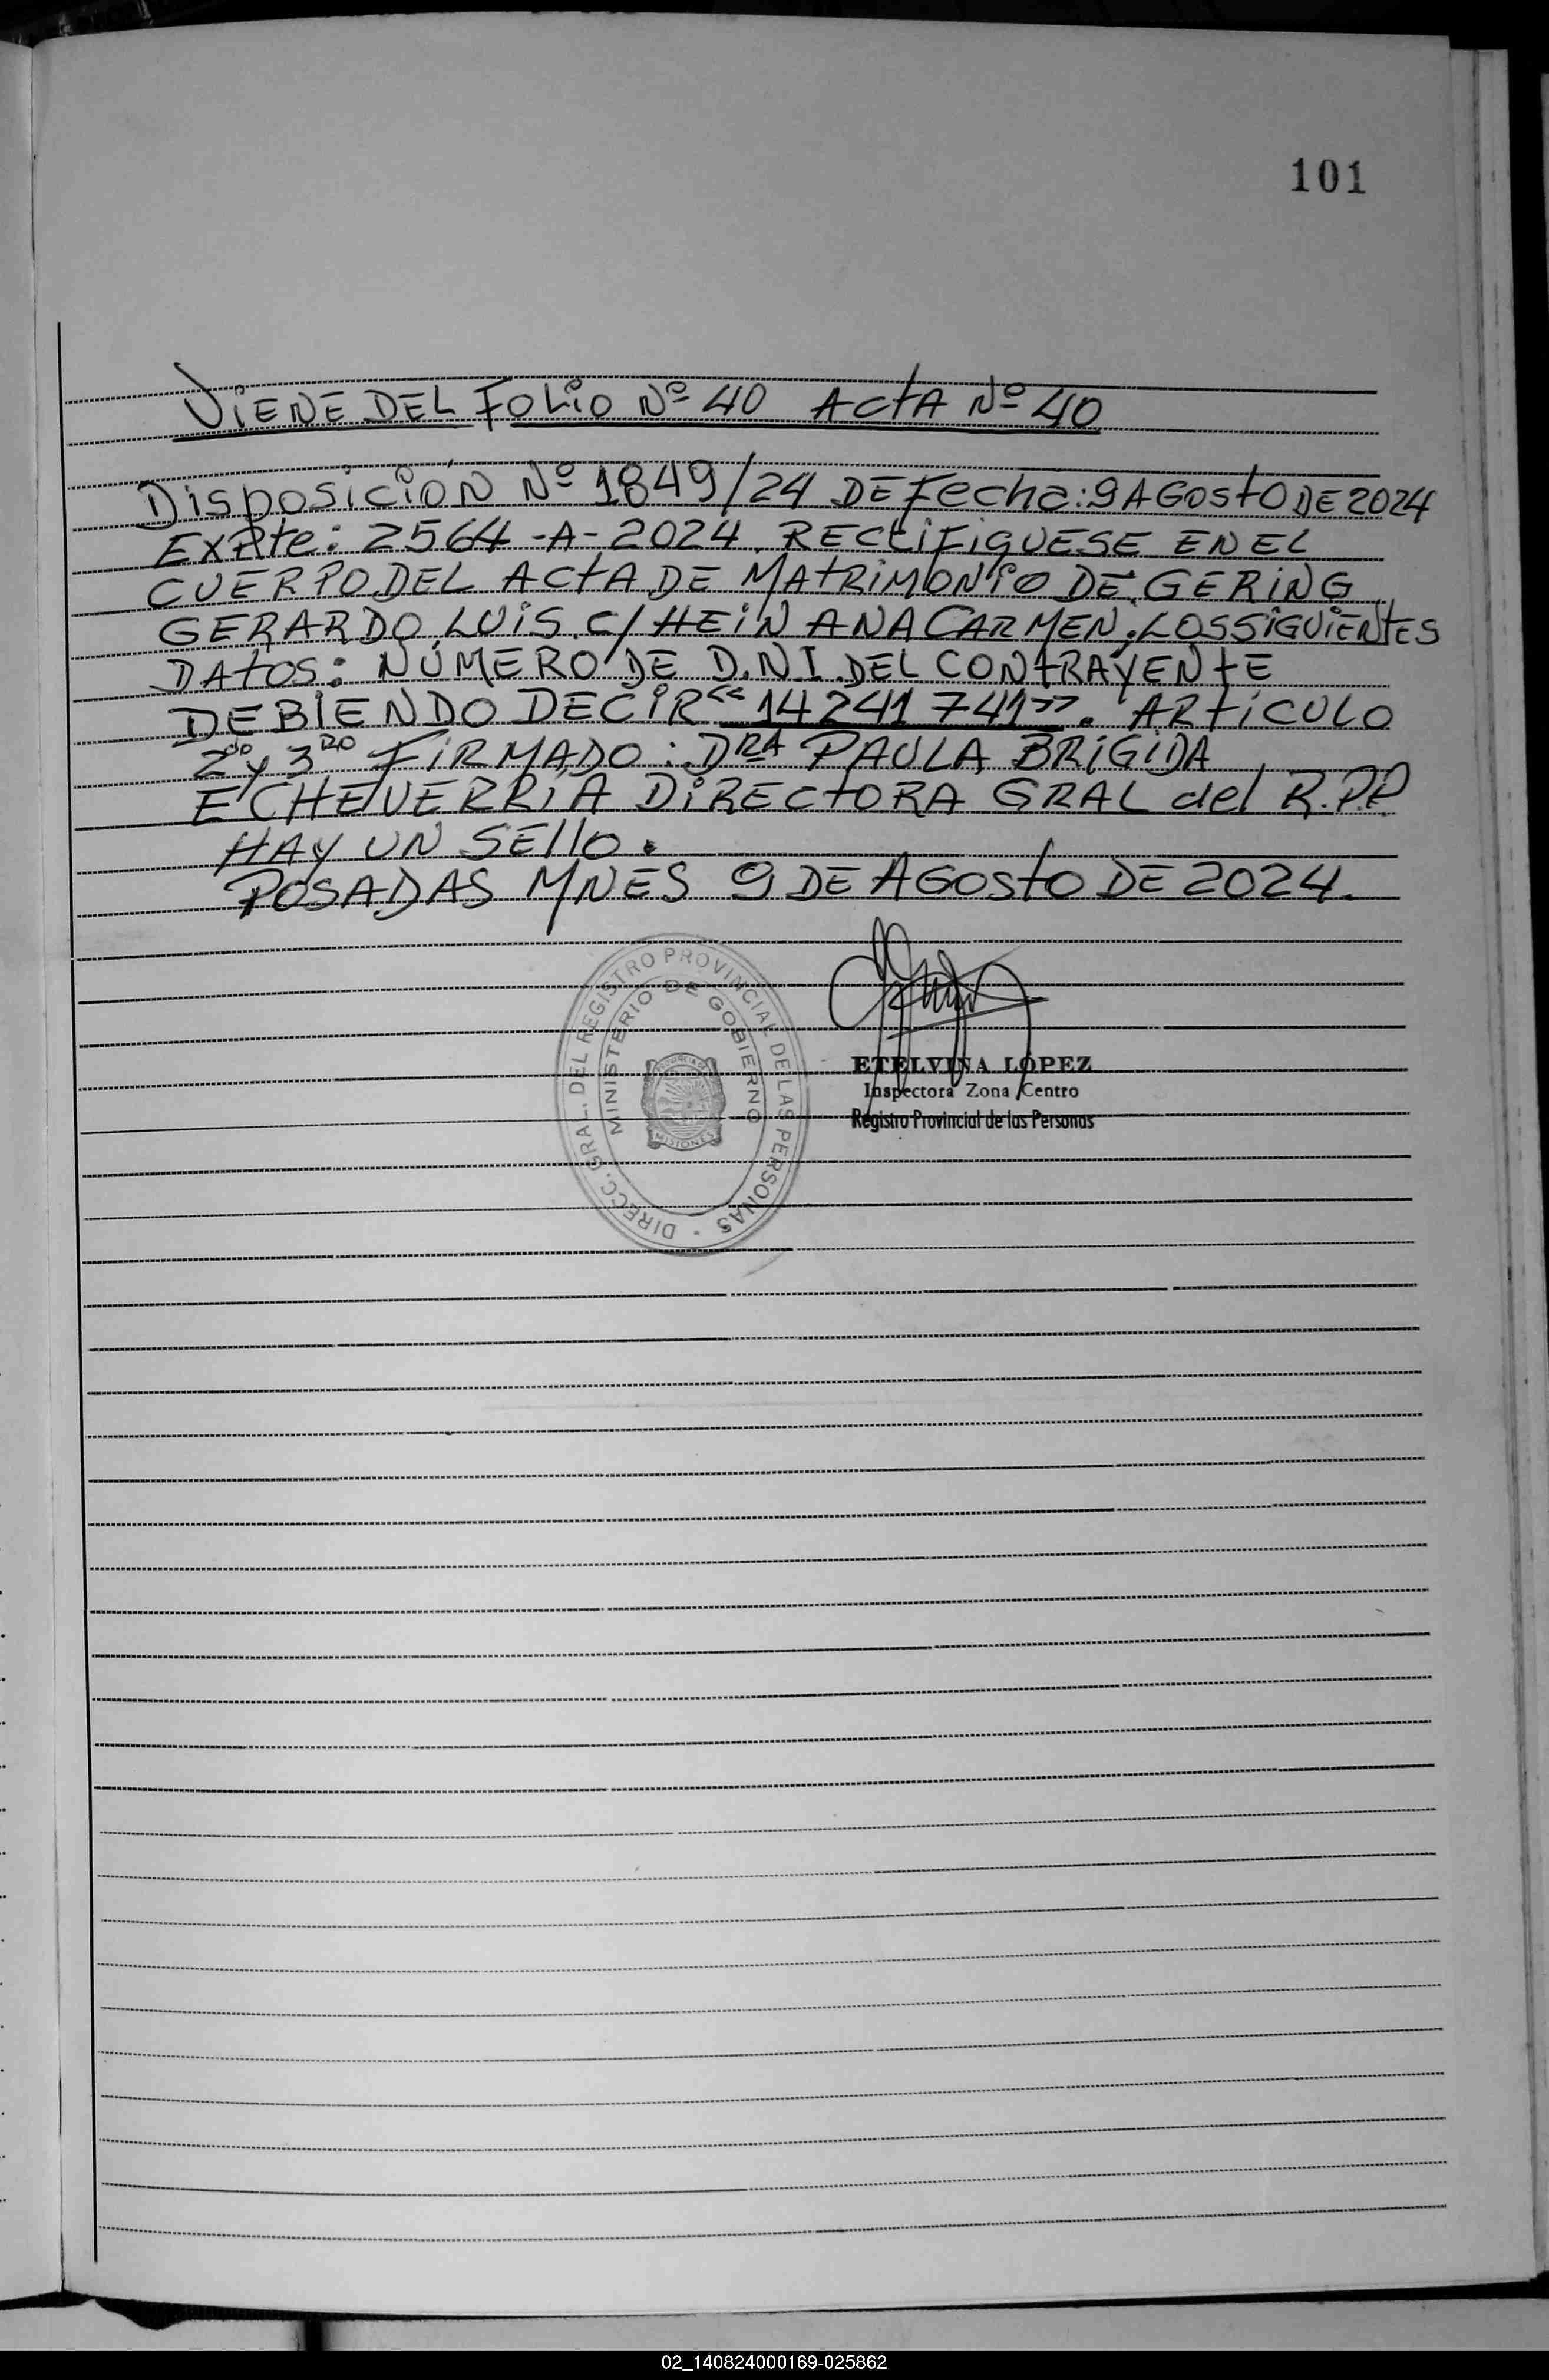 101
VIENE DEL FOLIO Nº 40 ACTA Nº 40
DISPOSICIÓN Nº 1849/24 DE Fecha: 9 AGOSTO DE 2024
EXPte: 2564-A-2024. RECTIFIQUESE EN EL
CUERPO DEL ACTA DE MATRIMONIO DE GERING
GERARDO LUIS C/ HEIN ANA CARMEN, LOS SIGUIENTES
DATOS: NÚMERO DE D.N.I. DEL CONTRAYENTE
DEBIENDO DECIR "14241741". ARTÍCULO
2do y 3RO FIRMADO: DRA PAULA BRIGIDA
ECHEVERRÍA DIRECTORA GRAL del R.P.P
HAY UN SELLO.
POSADAS MNES 9 DE AGOSTO DE 2024.
DIRECC. GRAL. DEL REGISTRO PROVINCIAL DE LAS PERSONAS
MINISTERIO DE GOBIERNO
MISIONES
ETELVINA LÓPEZ
Inspectora Zona Centro
Registro Provincial de las Personas
02_140824000169-025862